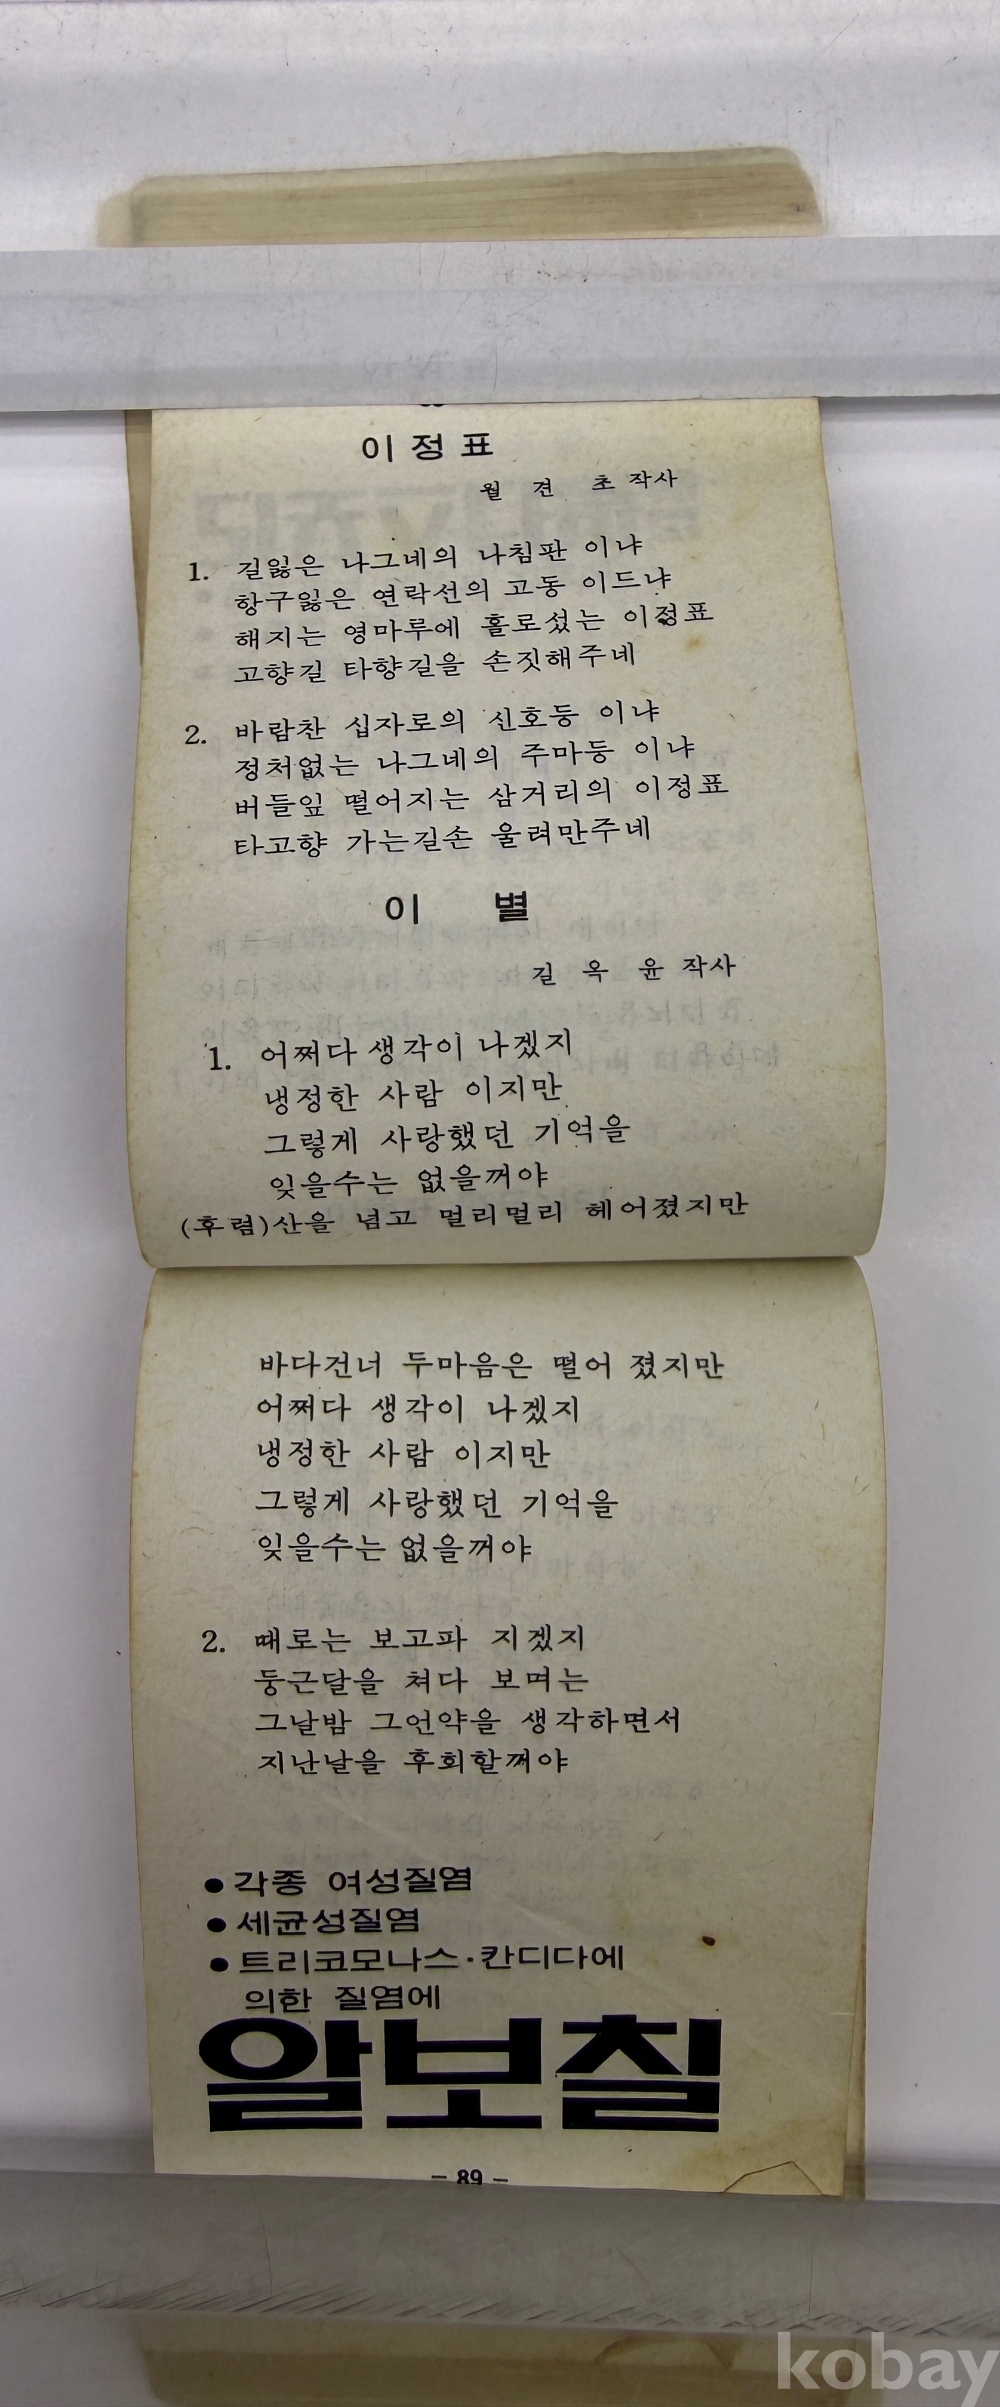 이정표
월 견 초 작사
1. 길잃은 나그네의 나침판 이냐
항구잃은 연락선의 고동 이드냐
해지는 영마루에 홀로섰는 이정표
고향길 타향길을 손짓해주네
2. 바람찬 십자로의 신호등 이냐
정처없는 나그네의 주마등 이냐
버들잎 떨어지는 삼거리의 이정표
타고향 가는길손 울려만주네
이 별
길 옥 윤 작사
1. 어쩌다 생각이 나겠지
냉정한 사람 이지만
그렇게 사랑했던 기억을
잊을수는 없을꺼야
(후렴)산을 넘고 멀리멀리 헤어졌지만
바다건너 두마음은 떨어 졌지만
어쩌다 생각이 나겠지
냉정한 사람 이지만
그렇게 사랑했던 기억을
잊을수는 없을꺼야
2. 때로는 보고파 지겠지
둥근달을 쳐다 보며는
그날밤 그언약을 생각하면서
지난날을 후회할꺼야
●각종 여성질염
●세균성질염
●트리코모나스·칸디다에
의한 질염에
알보칠
– 89 –
kobay